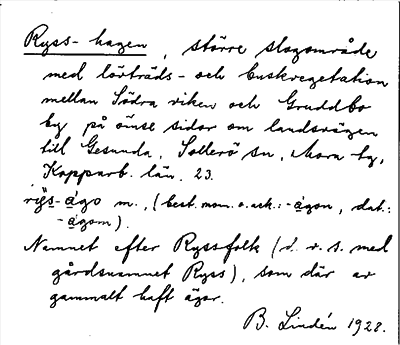 Ryss-hagen, större slogområde
med lövträds- och buskvegetation
mellan Södra viken och Gruddbo
by på ömse sidor om landsvägen
till Gesunda, Sollerö sn, Mora tg,
Kopparb. län. 23.
-ågo m., (best. nom. o. ack.: -ågon, dat.:
-ågom).
Namnet efter Ryssfolk (d. v. s. med
gårdsnamnet Ryss), som där av
gammalt haft ägor.
B. Lindén 1928.